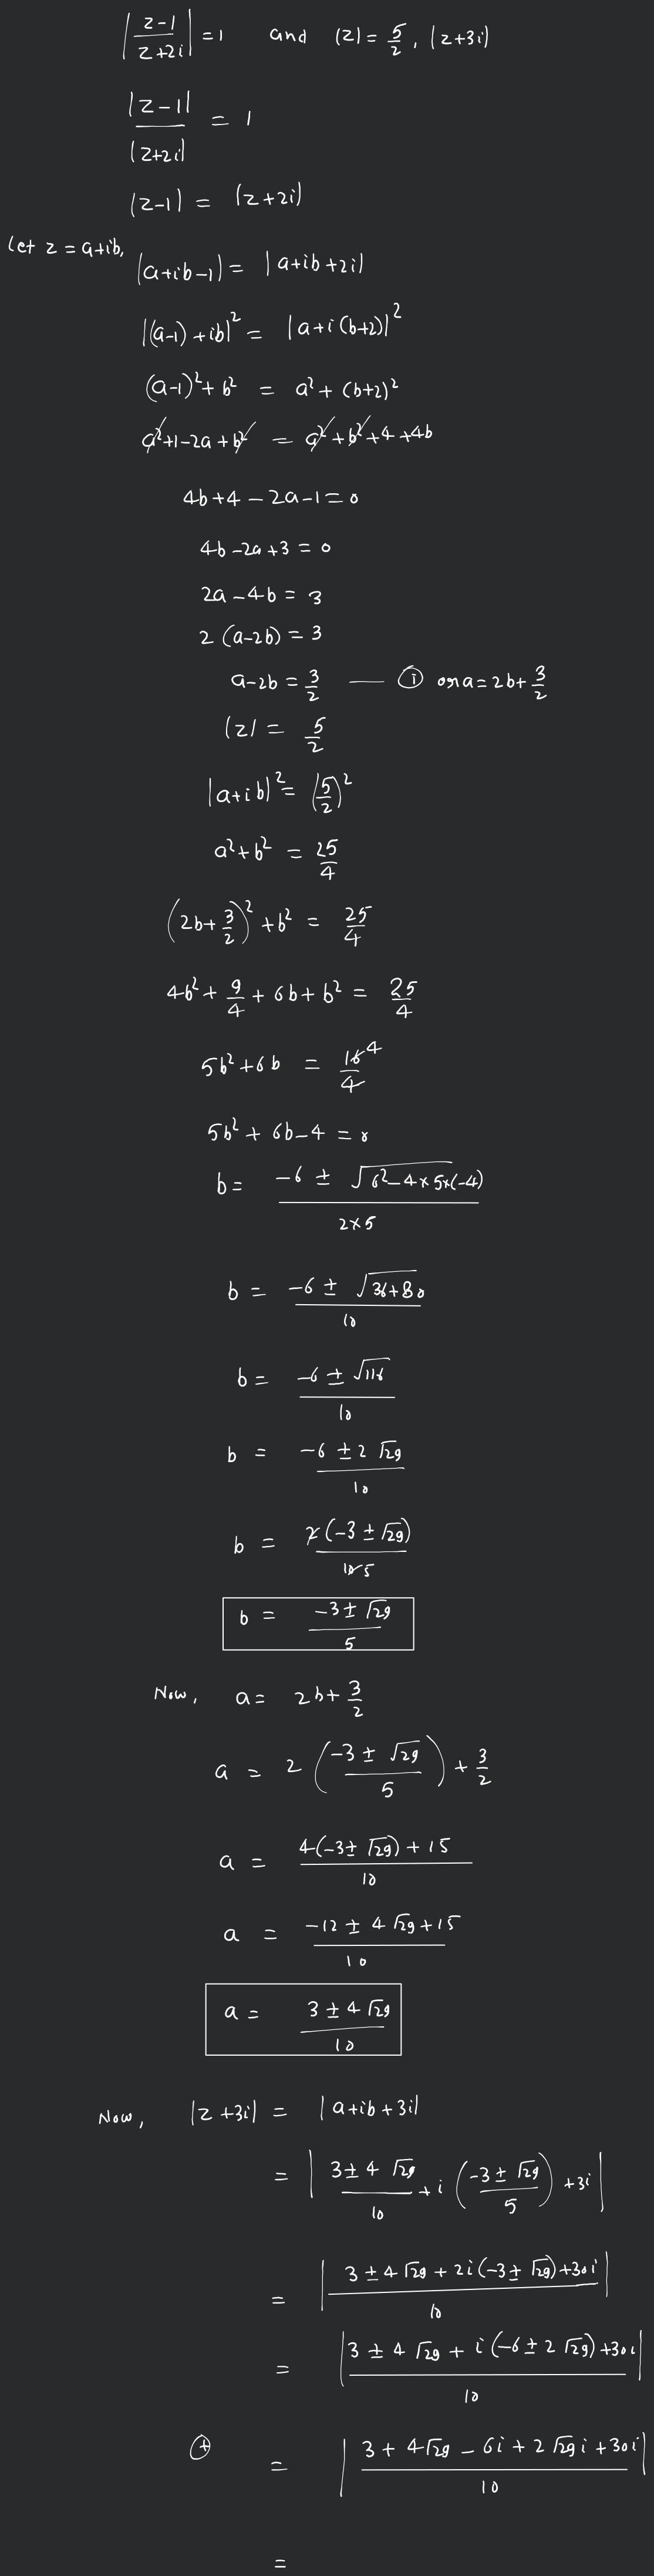 |(z-1)/(z+2i)| = 1 and |z| = 5/2, |z+3i|
|z-1|/|z+2i| = 1
|z-1| = |z+2i|
Let z = a+ib, |a+ib-1| = |a+ib+2i|
|(a-1)+ib|² = |a+i(b+2)|²
(a-1)²+b² = a²+(b+2)²
a²+1-2a+b² = a²+b²+4+4b
4b+4-2a-1=0
4b-2a+3=0
2a-4b=3
2(a-2b)=3
a-2b=3/2 — ① or a=2b+3/2
|z| = 5/2
|a+ib|² = (5/2)²
a²+b² = 25/4
(2b+3/2)²+b² = 25/4
4b²+9/4+6b+b² = 25/4
5b²+6b = 16/4 4
5b²+6b-4=0
b = (-6 ± √(6²-4×5×(-4)))/(2×5)
b = (-6 ± √(36+80))/10
b = (-6 ± √116)/10
b = (-6 ± 2√29)/10
b = 2(-3 ± √29)/10 5
b = (-3 ± √29)/5
Now, a = 2b+3/2
a = 2((-3 ± √29)/5)+3/2
a = (4(-3 ± √29)+15)/10
a = (-12 ± 4√29+15)/10
a = (3 ± 4√29)/10
Now, |z+3i| = |a+ib+3i|
= |(3 ± 4√29)/10 + i((-3 ± √29)/5) + 3i|
= |(3 ± 4√29 + 2i(-3 ± √29)+30i)/10|
= |(3 ± 4√29 + i(-6 ± 2√29)+30i)/10|
⊕ = |(3 + 4√29 - 6i + 2√29i + 30i)/10|
=